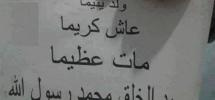 ولد يتيما
عاش كريما
مات عظيما
الخلق محمد رسول الله